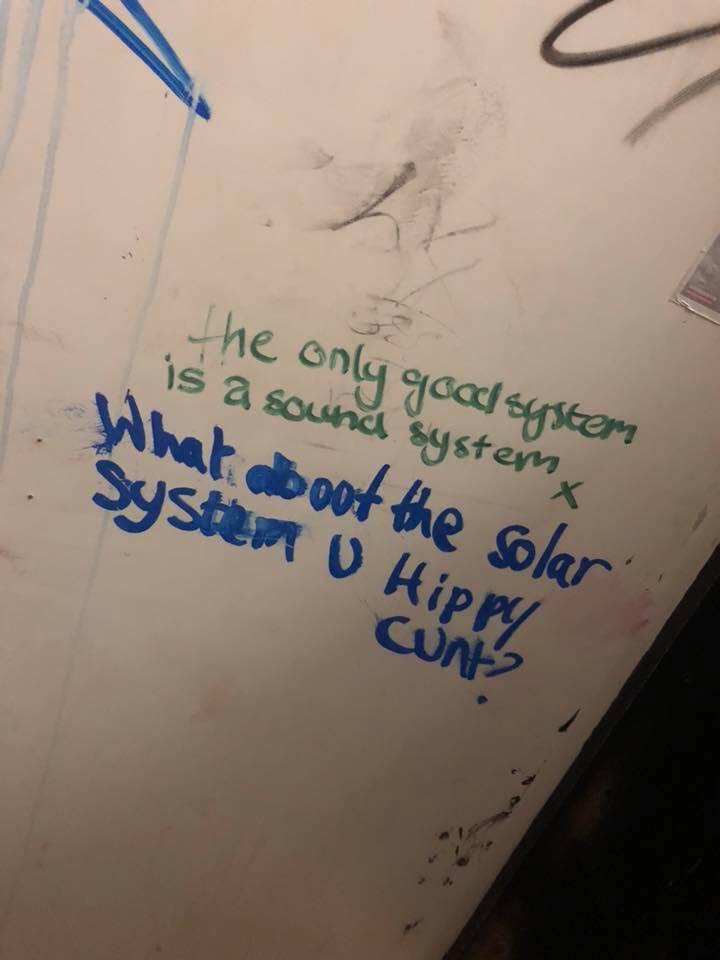 the only good system
is a sound system x
What aboot the solar
system U Hippy
cunt?